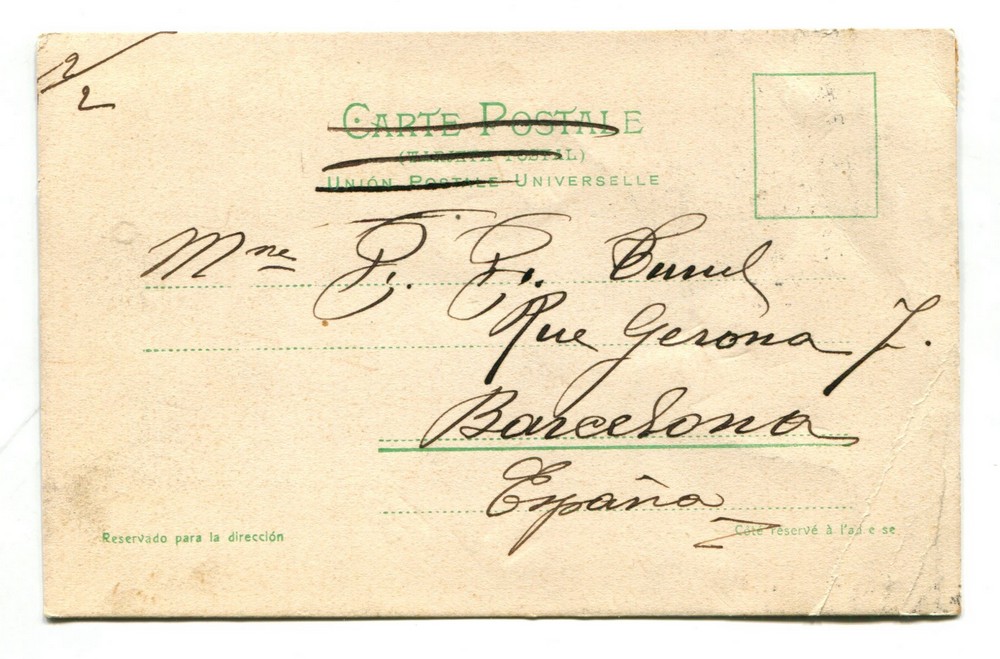 2/2
CARTE POSTALE
(TARJETA POSTAL)
UNIÓN POSTALE UNIVERSELLE
Mme
Rue Gerona 7.
Barcelona
España
Reservado para la dirección
Côté réservé à l'ad e se